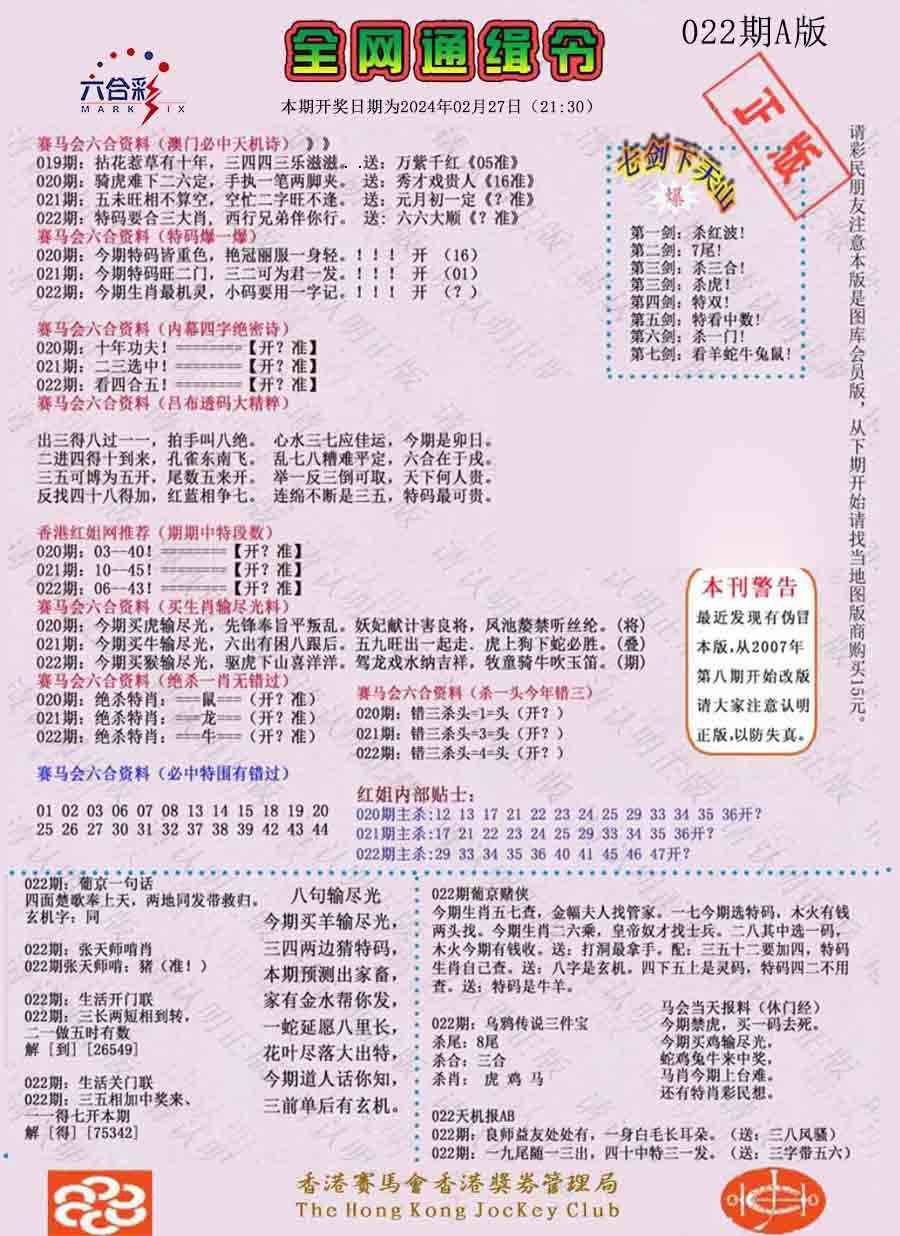 全网通缉令
022期A版
六合彩
MARK SIX
本期开奖日期为2024年02月27日（21:30）
正版
赛马会六合资料（澳门必中天机诗）》》
019期：拈花惹草有十年，三四四三乐滋滋。.送：万紫千红《05准》
020期：骑虎难下二六定，手执一笔两脚夹。 送：秀才戏贵人《16准》
021期：五未旺相不算空，空忙二字旺不逢。 送：元月初一定《？准》
022期：特码要合三大肖，西行兄弟伴你行。 送: 六六大顺《？准》
赛马会六合资料（特码爆一爆）
020期：今期特码皆重色，艳冠丽服一身轻。！！！ 开 （16）
021期：今期特码旺二门，三二可为君一发。！！！ 开 （01）
022期：今期生肖最机灵，小码要用一字记。！！！ 开 （？）
七剑下天山
爆
第一剑：杀红波！
第二剑：7尾！
第三剑：杀三合！
第三剑：杀虎！
第四剑：特双！
第五剑：特看中数！
第六剑：杀一门！
第七剑：看羊蛇牛兔鼠！
请彩民朋友注意本版是图库会员版，从下期开始请找当地图版商购买15元。
赛马会六合资料（内幕四字绝密诗）
020期：十年功夫！========【开？准】
021期：二三选中！========【开？准】
022期：看四合五！========【开？准】
赛马会六合资料（吕布透码大精粹）
出三得八过一一，拍手叫八绝。 心水三七应佳运，今期是卯日。
二进四得十到来，孔雀东南飞。 乱七八糟难平定，六合在于戌。
三五可博为五开，尾数五来开。 举一反三倒可取，天下何人贵。
反找四十八得加，红蓝相争七。 连绵不断是三五，特码最可贵。
香港红姐网推荐（期期中特段数）
020期：03--40！========【开？准】
021期：10--45！========【开？准】
022期：06--43！========【开？准】
赛马会六合资料（买生肖输尽光料）
020期：今期买虎输尽光，先锋奉旨平叛乱。妖妃献计害良将，风池嫠禁听丝纶。（将）
021期：今期买牛输尽光，六出有困八跟后。五九旺出一起走．虎上狗下蛇必胜。（叠）
022期：今期买猴输尽光，驱虎下山喜洋洋。驾龙戏水纳吉祥，牧童骑牛吹玉笛。（期）
本刊警告
最近发现有伪冒
本版,从2007年
第八期开始改版
请大家注意认明
正版,以防失真。
赛马会六合资料（绝杀一肖无错过）
020期：绝杀特肖：===鼠===（开？准）
021期：绝杀特肖：===龙===（开？准）
022期：绝杀特肖：===牛===（开？准）
赛马会六合资料（杀一头今年错三）
020期：错三杀头=1=头（开？）
021期：错三杀头=3=头（开？）
022期：错三杀头=4=头（开？）
赛马会六合资料（必中特围有错过）
01 02 03 06 07 08 13 14 15 18 19 20
25 26 27 30 31 32 37 38 39 42 43 44
红姐内部贴士：
020期主杀:12 13 17 21 22 23 24 25 29 33 34 35 36开？
021期主杀:17 21 22 23 24 25 29 33 34 35 36开？
022期主杀:29 33 34 35 36 40 41 45 46 47开？
022期：葡京一句话
四面楚歌奉上天，两地同发带救归。
玄机字：同
022期：张天师啃肖
022期张天师啃：猪（准！）
022期：生活开门联
022期：三长两短相到转，
二一做五时有数
解［到］[26549]
022期：生活关门联
022期：三五相加中奖来、
一一得七开本期
解［得］[75342]
八句输尽光
今期买羊输尽光，
三四两边猜特码，
本期预测出家畜，
家有金水帮你发，
一蛇延愿八里长，
花叶尽落大出特，
今期道人话你知，
三前单后有玄机。
022期葡京赌侠
今期生肖五七查，金幅夫人找管家。一七今期选特码，木火有钱
两头找。今期生肖二六乘，皇帝奴才找士兵。二八其中选一码，
木火今期有钱收。送：打洞最拿手。配：三五十二要加四，特码
生肖自己查。送：八字是玄机。四下五上是灵码，特码四二不用
查。送：特码是牛羊。
022期：乌鸦传说三件宝
杀尾：8尾
杀合：三合
杀肖： 虎 鸡 马
马会当天报料（休门经）
今期禁虎，买一码去死。
今期买鸡输尽光，
蛇鸡兔牛来中奖，
马肖今期上台难。
还有特肖彩民想。
022天机报AB
022期：良师益友处处有，一身白毛长耳朵。（送：三八风骚）
022期：一九尾随一三出，四十中特三一发。（送：三字带五六）
香港賽馬會香港獎券管理局
The Hong Kong JocKey Club